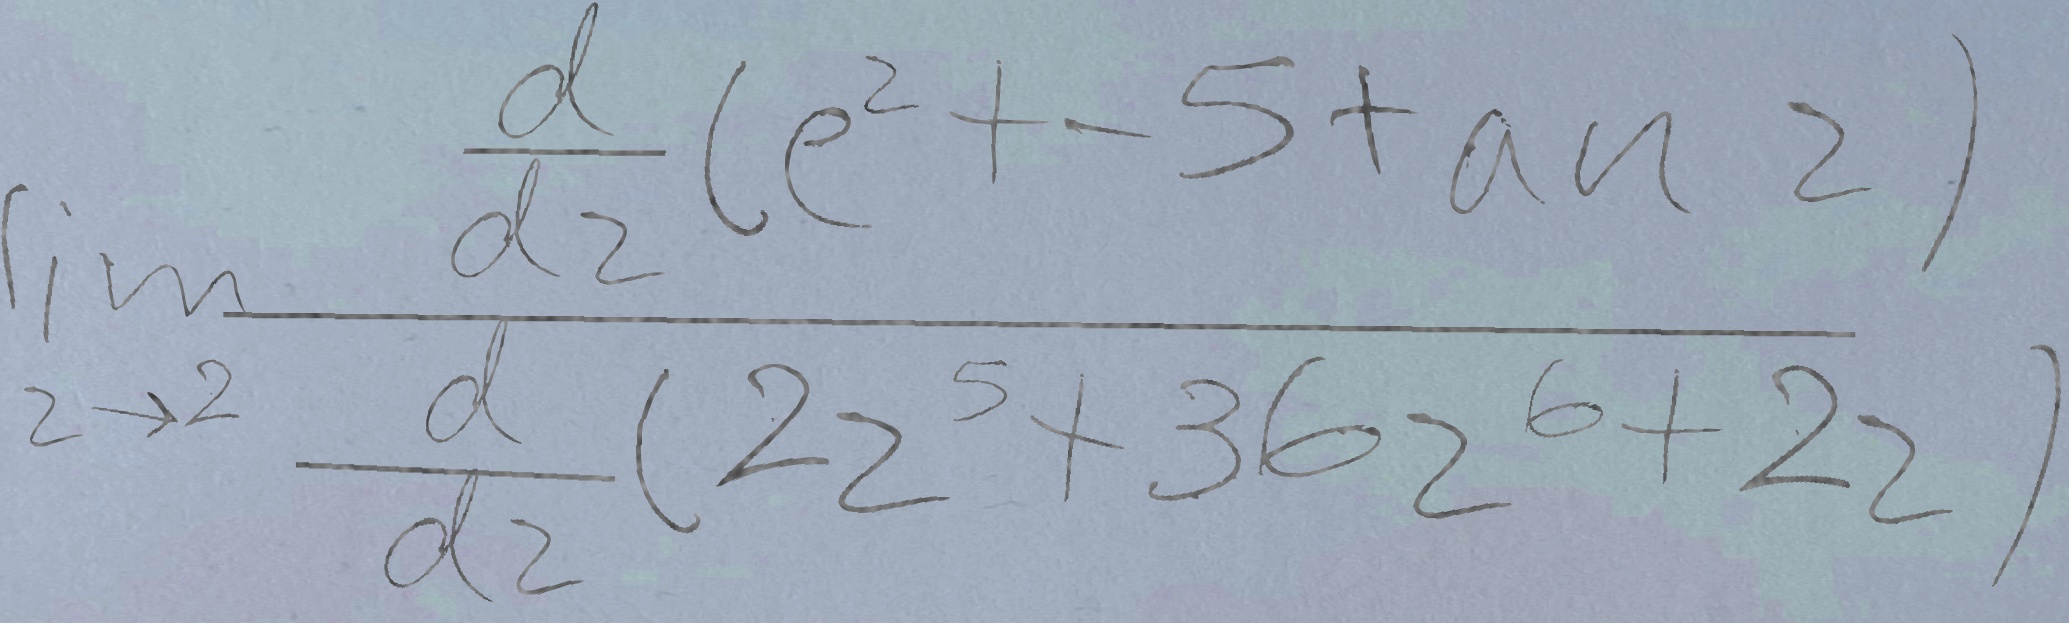 \lim_{z \to 2} \frac{\frac{d}{dz}(e^z + -5 \tan z)}{\frac{d}{dz}(2z^5 + 36z^6 + 2z)}